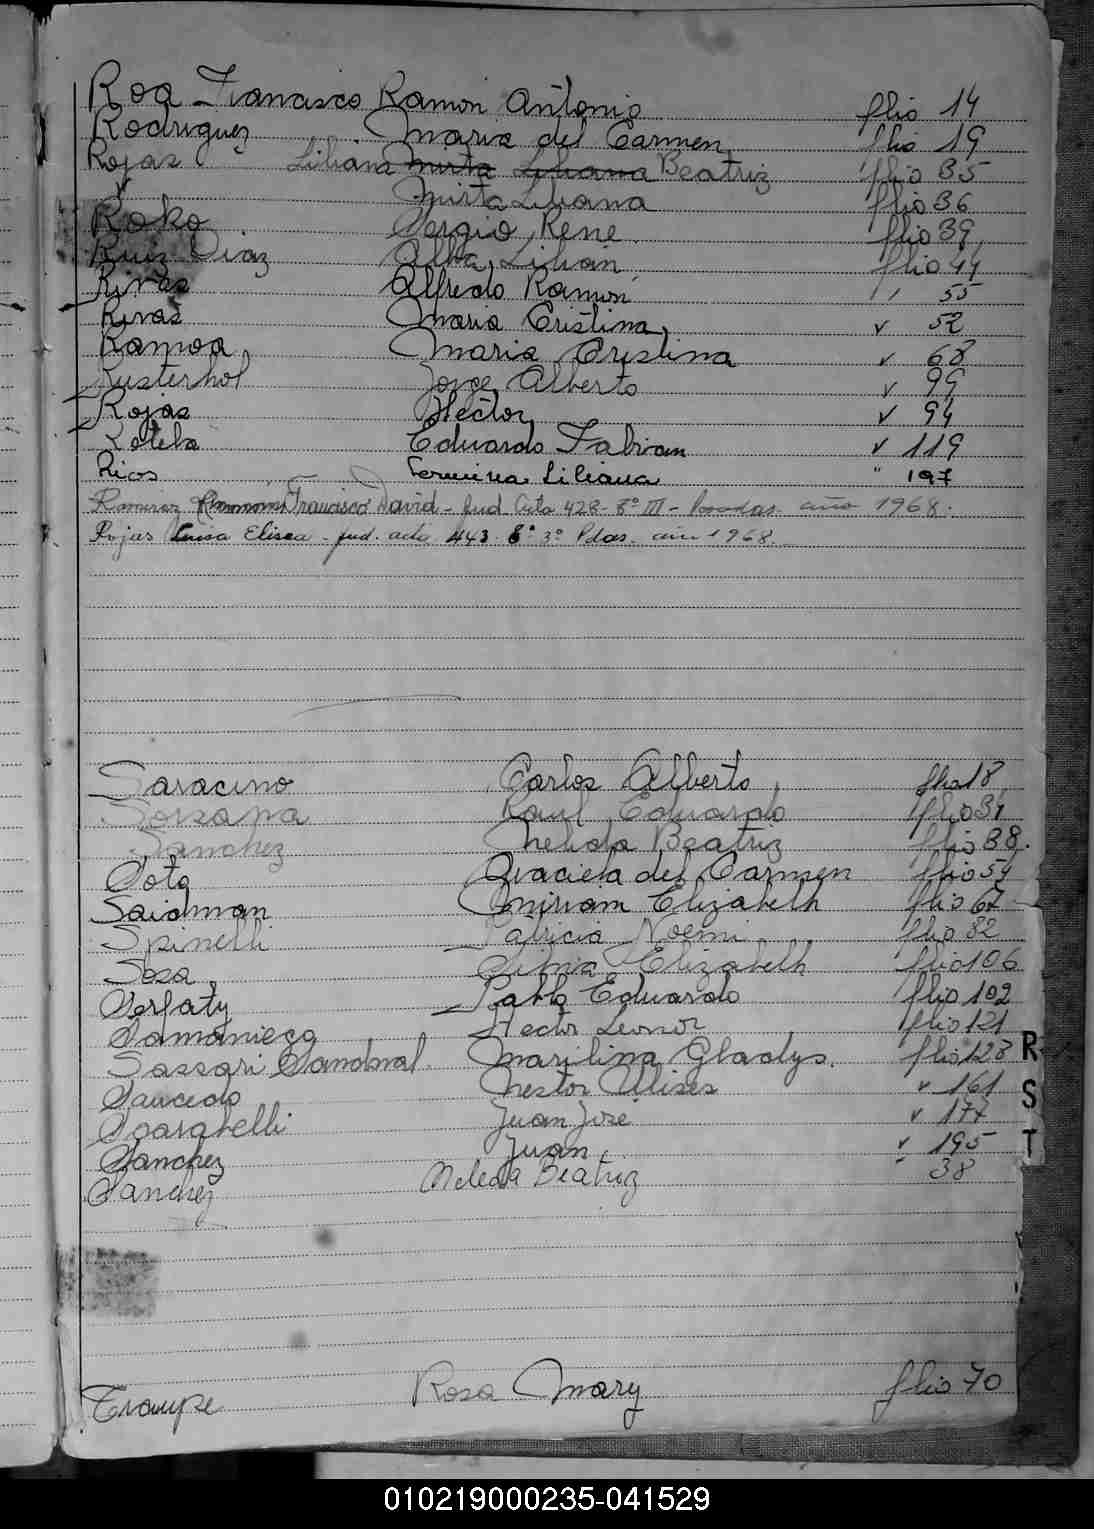 Roa Francisco Ramon Antonio flio 14
Rodriguez Maria del Carmen flio 19
Rojas Liliana Mirta Liliana Beatriz flio 35
" Mirta Liliana flio 36
Roko Sergio Rene flio 39
Ruiz Diaz Alba Lilian flio 44
Rivas Alfredo Ramon " 55
Rivas Maria Cristina " 52
Ramoa Maria Cristina " 68
Rusterhol Jorge Alberto " 99
Rojas Hector " 94
Kotela Eduardo Fabian " 119
Rios Liliana " 197
Ramirez Francisco David - Jud Acta 428 - 8° III - Posadas. año 1968.
Rojas Luisa Elisea - jud. acta 443 8° 3° Pdas. año 1968.
Saracino Carlos Alberto flio 18
Raul Eduardo flio 31
Sanchez Nelida Beatriz flio 38.
Soto Graciela del Carmen flio 54
Saidman Miriam Elizabeth flio 67
Spinelli Patricia Noemi flio 82
Sosa Silvia Elizabeth flio 106
Serfaty Pablo Eduardo flio 102
Samaniego Hector Leonor flio 121
Sassari Sandoval. Marilina Gladys. flio 128
Saucedo Nestor Ulises " 161
Scarabelli Juan José " 177
Sanchez Juan " 195
Sanchez Nelida Beatriz " 38
Traupe Rosa Mary flio 70
R
S
T
010219000235-041529